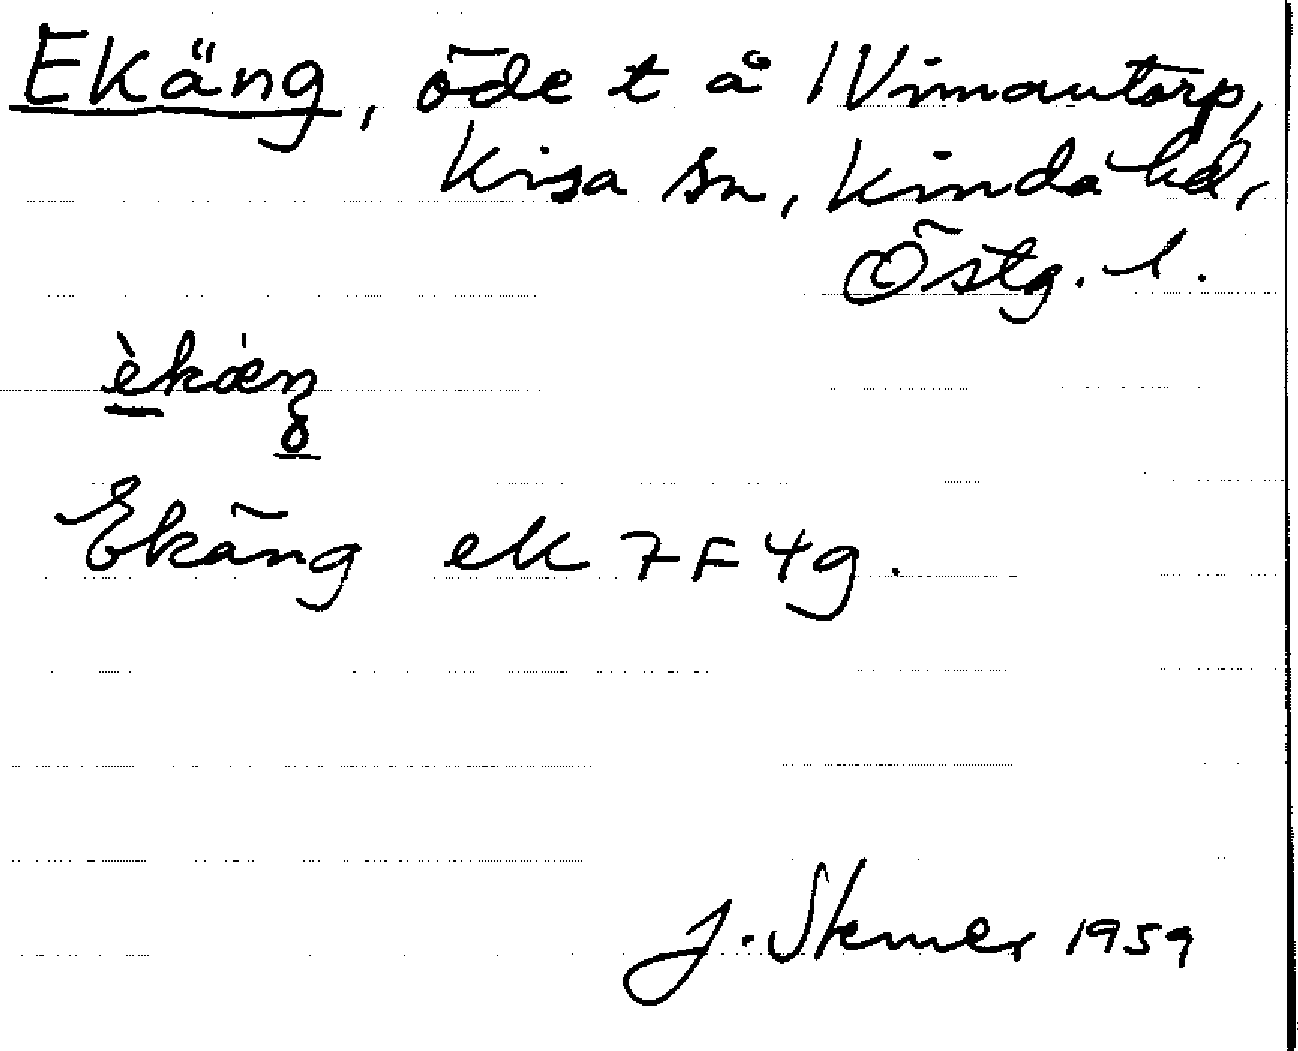 Ekäng, öde t å 1 Vimantorp,
Kisa sn, Kinda hd,
Östg. l.
èkæ̀ŋ
Ekäng ek 7F4g.
J. 1959